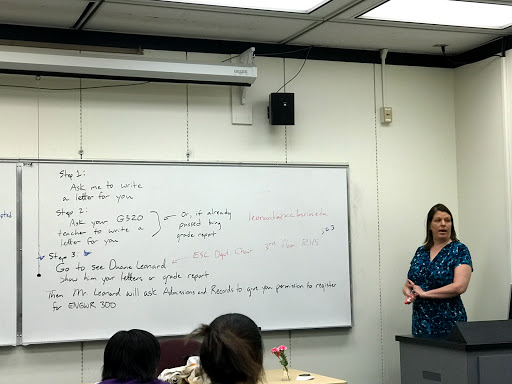 Step 1:
Ask me to write
a letter for you
Step 2:
Ask your G320
teacher to write a
letter for you
or, if already
passed bring
grade report
Step 3:
Go to see Duane Leonard
ESL Dept Chair 3rd floor RHS
Show him your letters or grade report
Then Mr. Leonard will ask Admissions and Records to give you permission to register
for ENGWR 300